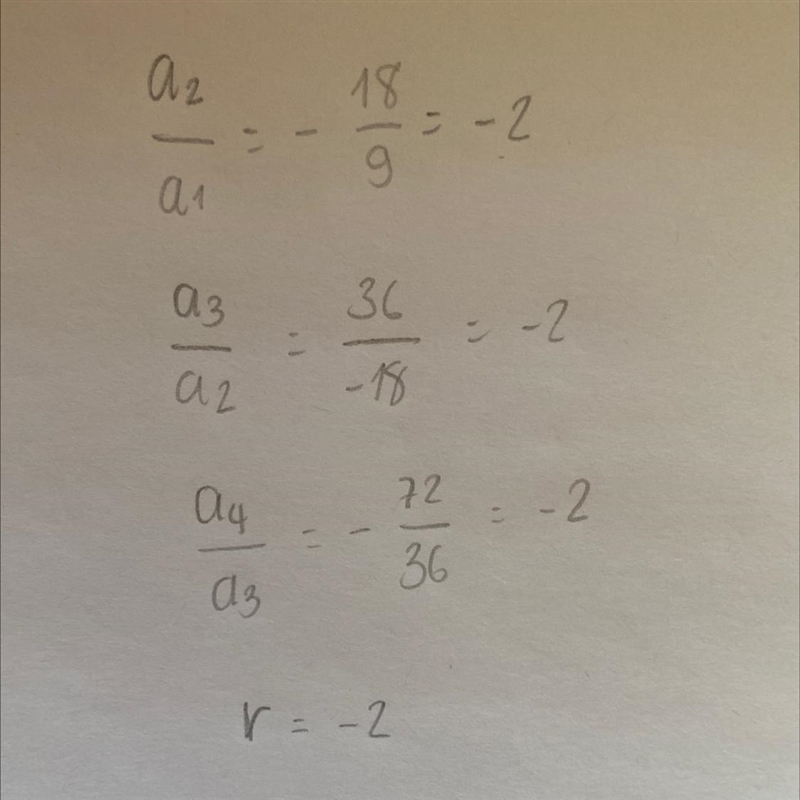 a2/a1 = - 18/9 = -2
a3/a2 = 36/-18 = -2
a4/a3 = - 72/36 = -2
r = -2